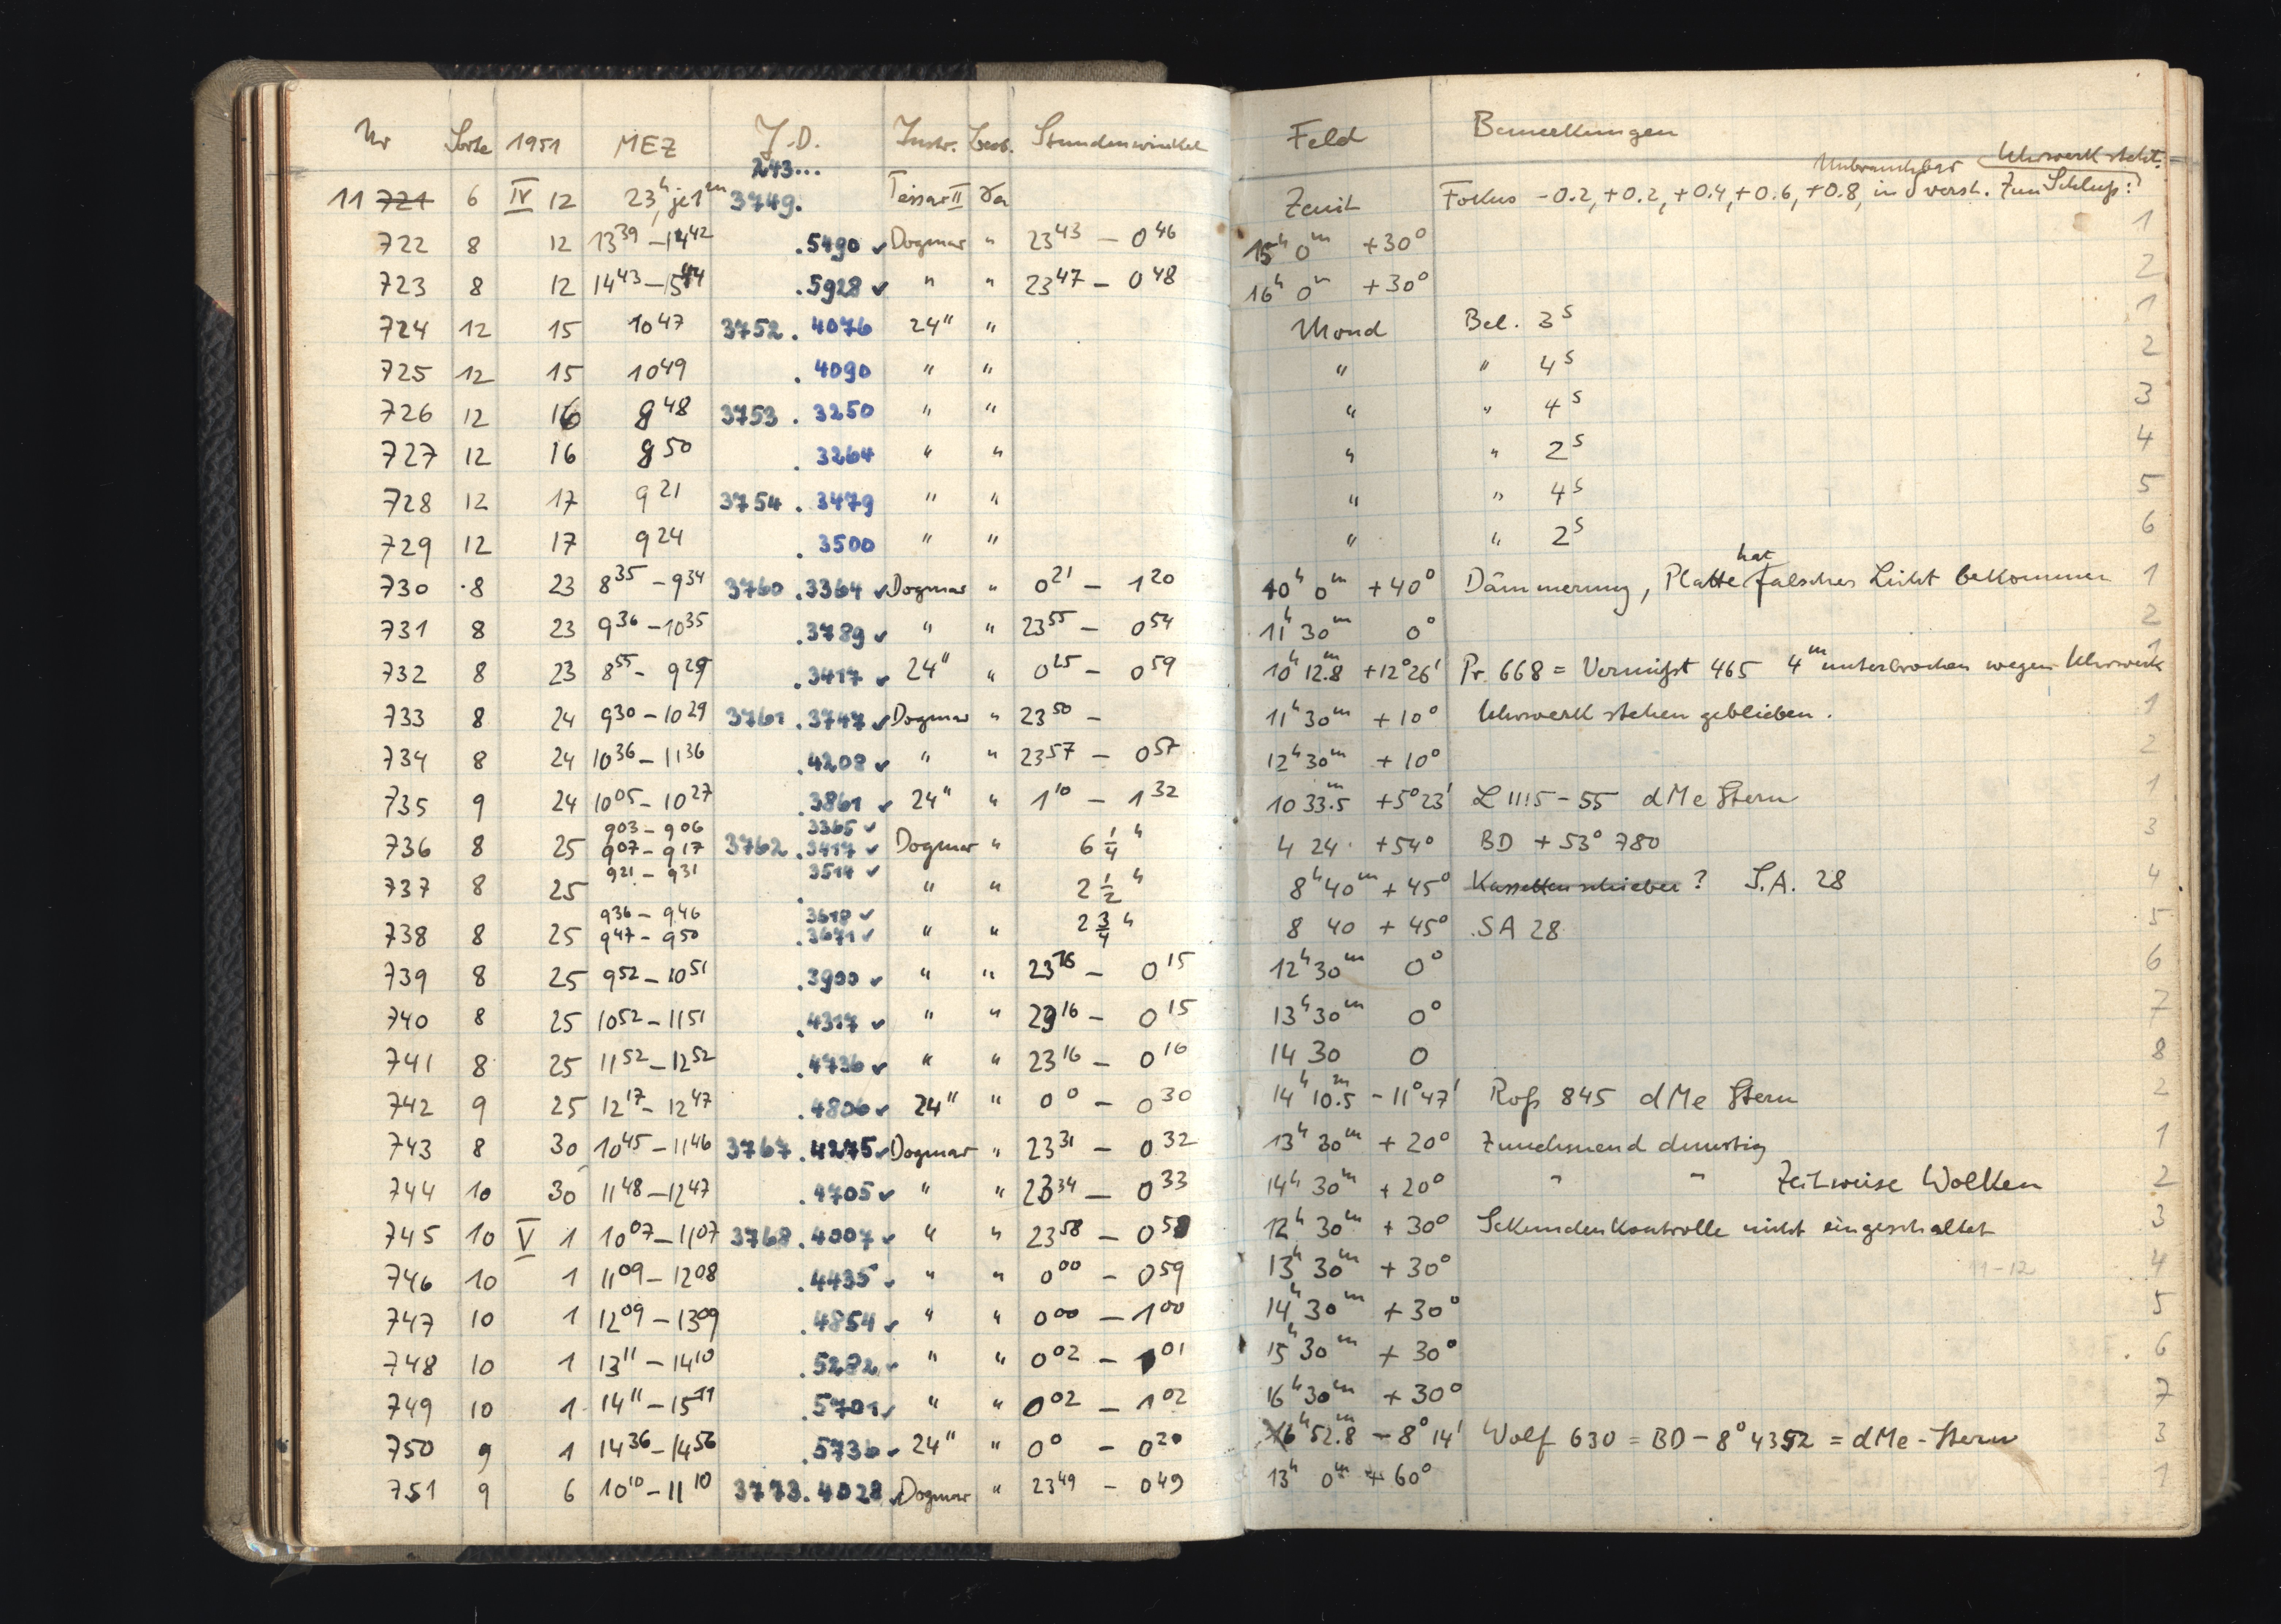 Nr Sorte 1951 MEZ J.D. Instr. Beob. Stundenwinkel Feld Bemerkungen
243... Unbrauchbar Uhrwerk steht.
11 721 6 IV 12 23h, je 1m 3749. Tessar II Zenit Fokus -0.2, +0.2, +0.4, +0.6, +0.8, in δ versch. Zum Schluß:
722 8 12 13 39 – 14 42 .5490 ✓ Dogmar " 23 43 – 0 46 15h 0m +30° 1
723 8 12 14 43 – 15 44 .5928 ✓ " " 23 47 – 0 48 16h 0m +30° 2
724 12 15 10 47 3752 . 4076 24" " Mond Bel. 3s 1
725 12 15 10 49 . 4090 " " " " 4s 2
726 12 16 8 48 3753 . 3250 " " " " 4s 3
727 12 16 8 50 . 3264 " " " " 2s 4
728 12 17 9 21 3754 . 3479 " " " " 4s 5
729 12 17 9 24 . 3500 " " " " 2s 6
730 8 23 8 35 – 9 34 3760 .3364 ✓ Dogmar " 0 21 – 1 20 10h 0m +40° Dämmerung, Platte hat falsches Licht bekommen 1
731 8 23 9 36 – 10 35 .3789 ✓ " " 23 55 – 0 54 11h 30m 0° 2
732 8 23 8 55 – 9 29 .3417 ✓ 24" " 0 25 – 0 59 10h 12.8m +12°26' Pr. 668 = Vermißt 465 4m unterbrochen wegen Uhrwerk 1
733 8 24 9 30 – 10 29 3761 .3747 ✓ Dogmar " 23 50 – 11h 30m +10° Uhrwerk stehen geblieben. 1
734 8 24 10 36 – 11 36 .4208 ✓ " " 23 57 – 0 57 12h 30m +10° 2
735 9 24 10 05 – 10 27 .3861 ✓ 24" " 1 10 – 1 32 10 33.5m +5°23' L 1115-55 dMe Stern 1
9 03 – 9 06 3365 ✓
736 8 25 9 07 – 9 17 3762 .3417 ✓ Dogmar " 6 1/4 h 4 24 +54° BD +53° 780 3
9 21 – 9 31 3514 ✓
737 8 25 . " " 2 1/2 h 8h 40m +45° Kassettenschieber ? S.A. 28 4
9 36 – 9 46 3618 ✓
738 8 25 9 47 – 9 50 .3671 ✓ " " 2 3/4 h 8 40 +45° SA 28 5
739 8 25 9 52 – 10 51 .3900 ✓ " " 23 16 – 0 15 12h 30m 0° 6
740 8 25 10 52 – 11 51 .4317 ✓ " " 23 16 – 0 15 13h 30m 0° 7
741 8 25 11 52 – 12 52 .4736 ✓ " " 23 16 – 0 16 14 30 0 8
742 9 25 12 17 – 12 47 .4806 ✓ 24" " 0 0 – 0 30 14h 10.5m -11°47' Roß 845 dMe Stern 2
743 8 30 10 45 – 11 46 3767 .4275 ✓ Dogmar " 23 31 – 0 32 13h 30m +20° Zunehmend dunstig 1
744 10 30 11 48 – 12 47 .4705 ✓ " " 23 34 – 0 33 14h 30m +20° " " Zeitweise Wolken 2
745 10 V 1 10 07 – 11 07 3768 .4007 ✓ " " 23 58 – 0 58 12h 30m +30° Sekundenkontrolle nicht eingeschaltet 3
746 10 1 11 09 – 12 08 .4435 ✓ " " 0 00 – 0 59 13h 30m +30° 11-12 4
747 10 1 12 09 – 13 09 .4854 ✓ " " 0 00 – 1 00 14h 30m +30° 5
748 10 1 13 11 – 14 10 .5282 ✓ " " 0 02 – 1 01 15h 30m +30° 6
749 10 1 14 11 – 15 11 .5701 ✓ " " 0 02 – 1 02 16h 30m +30° 7
750 9 1 14 36 – 14 56 .5736 ✓ 24" " 0 0 – 0 20 16h 52.8m -8°14' Wolf 630 = BD -8° 4352 = dMe-Stern 3
751 9 6 10 10 – 11 10 3773.4028 ✓ Dogmar " 23 49 – 0 49 13h 0m +60° 1